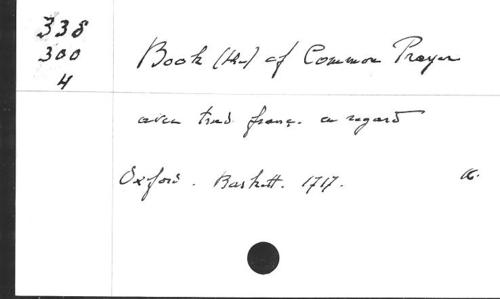 338
300
4
Book (the) of Common Prayer
avec trad. franç. en regard
Oxford. Baskett. 1717.